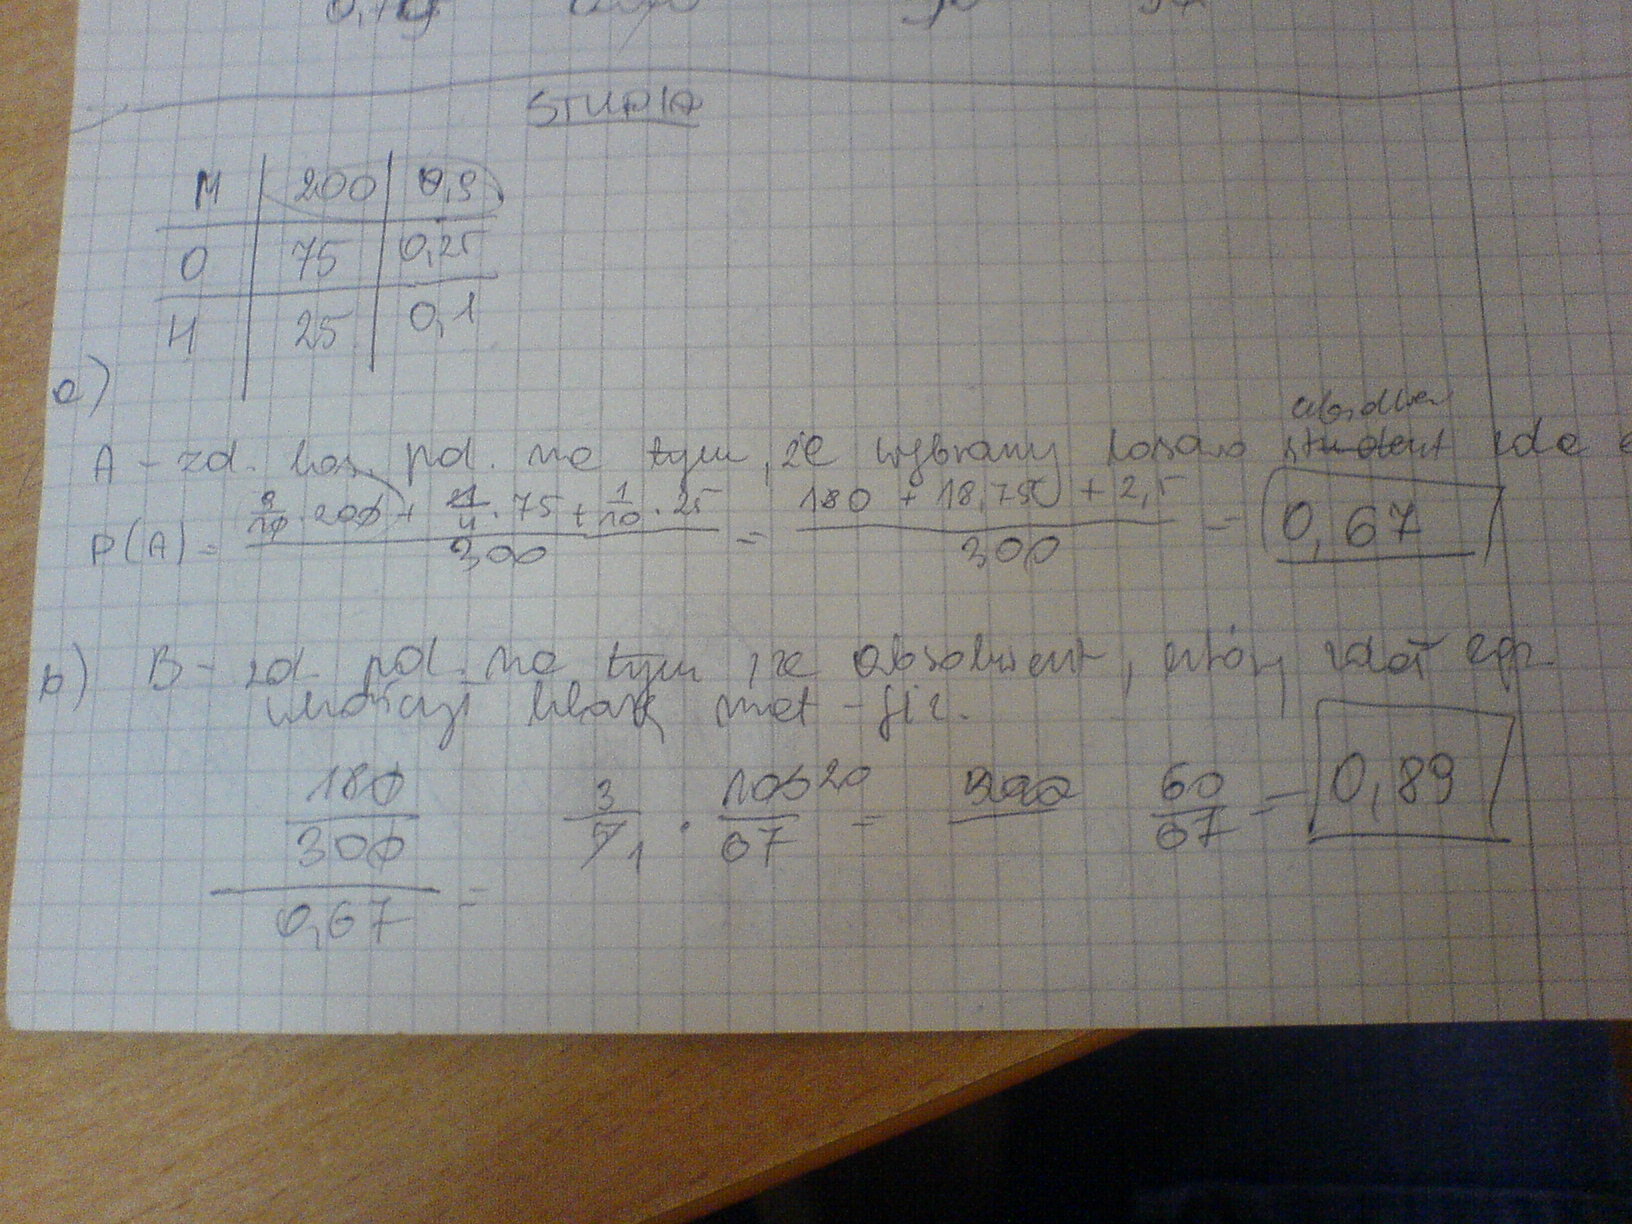 STUDIA
M 200 0,9
O 75 0,25
H 25 0,1
a)
absolwent
A - zd. los. pol. na tym, że wybrany losowo student zda e
P(A) = 9/10 · 200 + 1/4 · 75 + 1/10 · 25 / 300 = 180 + 18,750 + 2,5 / 300 = 0,67
b) B - zd. pol. na tym, że absolwent, który zdał egz.
ukończył klasę mat - fiz.
180/300 / 0,67 = 3/5 1 · 100 20 / 67 = 300 60/67 = 0,89